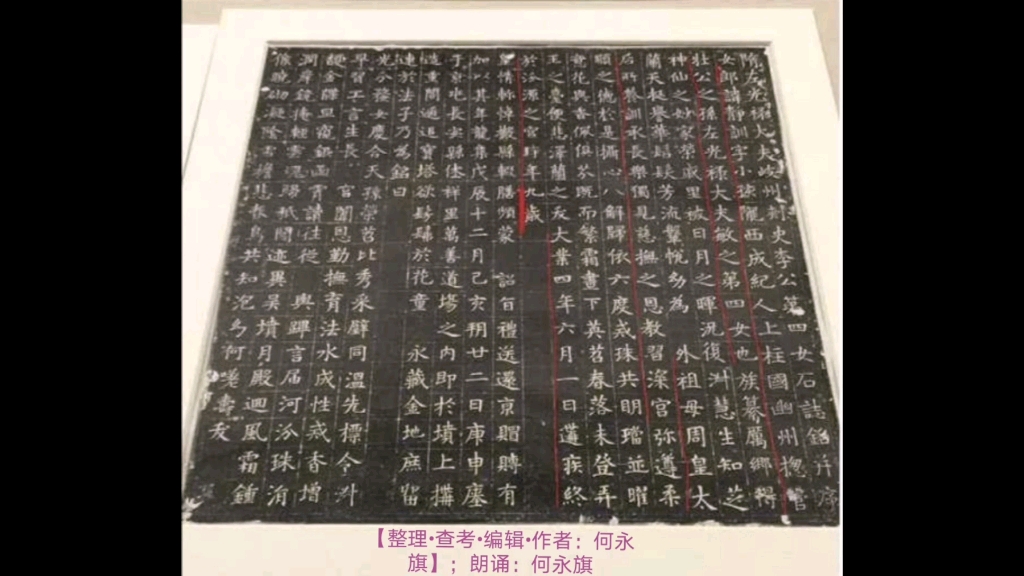 隋左光祿大夫岐州刺史李公第四女石誌銘并序
女郎諱靜訓字小孩隴西成紀人上柱國幽州揔管
壯公之孫左光祿大夫敏之第四女也族纂厲鄉得
神仙之妙家榮戚里被日月之暉況復淑慧生知芝
蘭天挺譽華髫髮芳流鞶帨幼為 外祖母周皇太
后所養訓承長樂獨見慈撫之恩教習深宮弥遵柔
順之德於是攝心八解歸依六度戒珠共明璫並曜
意花與香佩俱芬既而繁霜晝下英苕春落未登弄
玉之臺便悲澤蘭之夭大業四年六月一日遘疾終
於汾源之宮時年九歲
皇情軫悼撤縣輟膳頻蒙 詔旨禮送還京賵賻有
加以其年龍集戊辰十二月己亥朔廿二日庚申瘞
于京兆長安縣休祥里萬善道塲之內即於墳上搆
造重閣遥追寶塔欲髣髴於花童 永藏金地庶留
連於法子乃為銘曰
光分婺女慶合天孫榮苕比秀采璧同溫先標令淑
早習工言生長 宮闈恩勤撫育法水成性戒香增
馥金牓旦窻銀函霄讀往從 輿蹕言屆河汾珠涓
潤岸鏡掩輕雲魂歸砥閣迹異吴墳月殿迴風霜鐘
候曉砌凝陰雪檐悲春鳥共知泡幻何嗟壽夭
【整理•查考•编辑•作者：何永
旗】；朗诵：何永旗